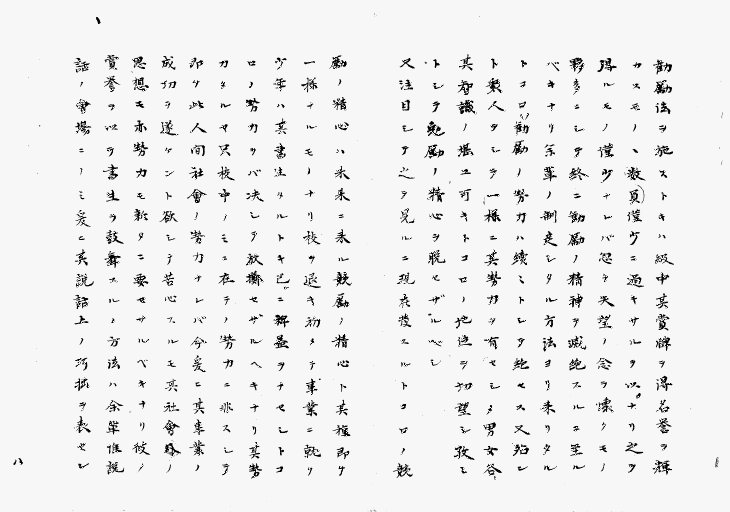 勧励法ヲ施ストキハ級中其賞牌ヲ得名誉ヲ輝
カスモノハ数員僅少ニ過キサルヲ以ナリ之ヲ
得ルモノ僅少ナレバ忽チ失望ノ念ヲ懐クモノ
夥多ニシテ終ニ勧励ノ精神ヲ滅絶スルニ至ル
ベキナリ余輩ノ制定シタル方法ヨリ来リタル
トコロノ勧励ノ勢力ハ続ミトシテ絶セス又殆ン
ト衆人ヲシテ一様ニ其勢力ヲ有セシメ男女各
其智識ノ堪ユ可キトコロノ地位ヲ切望シ孜ミ
トシテ勉励ノ精心ヲ脱セザルベシ
又注目シテ之ヲ見ルニ現在発スルトコロノ競
励ノ精心ハ未来ニ来ル競励ノ精心ト其種即ケ
一様ナルモノナリ校ヲ退キ初メテ事業ニ就ク
少年ハ其書生タルトキ已ニ裨益ヲナセシトコ
ロノ勢力ヲバ决シテ放擲セザルヘキナリ其勢
力タルヤ只校中ノミニ在テノ勢力ニ非スシテ
即ケ此人間社會ノ勢力ナレバ今爰ニ其事業ノ
成功ヲ遂ケント欲シテ苦心スルモ其社會
思想モ亦勢力モ新タニ要セザルベキナリ彼ノ
賞誉ヲ以テ書生ヲ鼓舞スルノ方法ハ余輩惟説
話ノ會場ニノミ爰ニ其説話上ノ巧拙ヲ表セシ